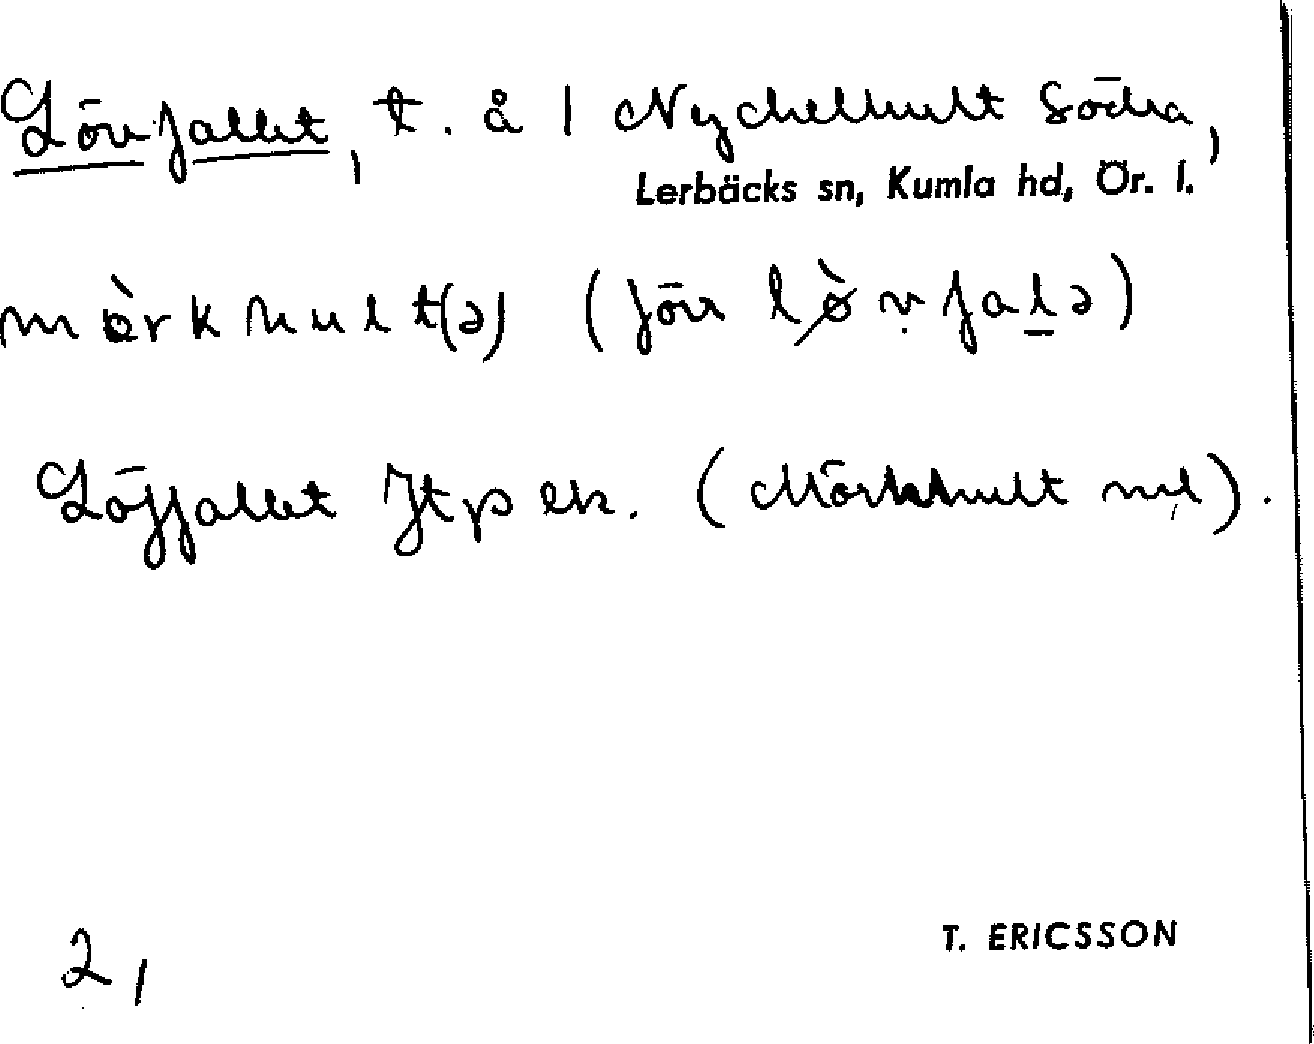 Lövfallet, t. å 1 Nyckelhult Södra,
Lerbäcks sn, Kumla hd, Ör. l.
mèrkhult(ə) (förr lø̀vfalə)
Löffallet Jtp ek. (Mörkhult ml).
2,
T. ERICSSON